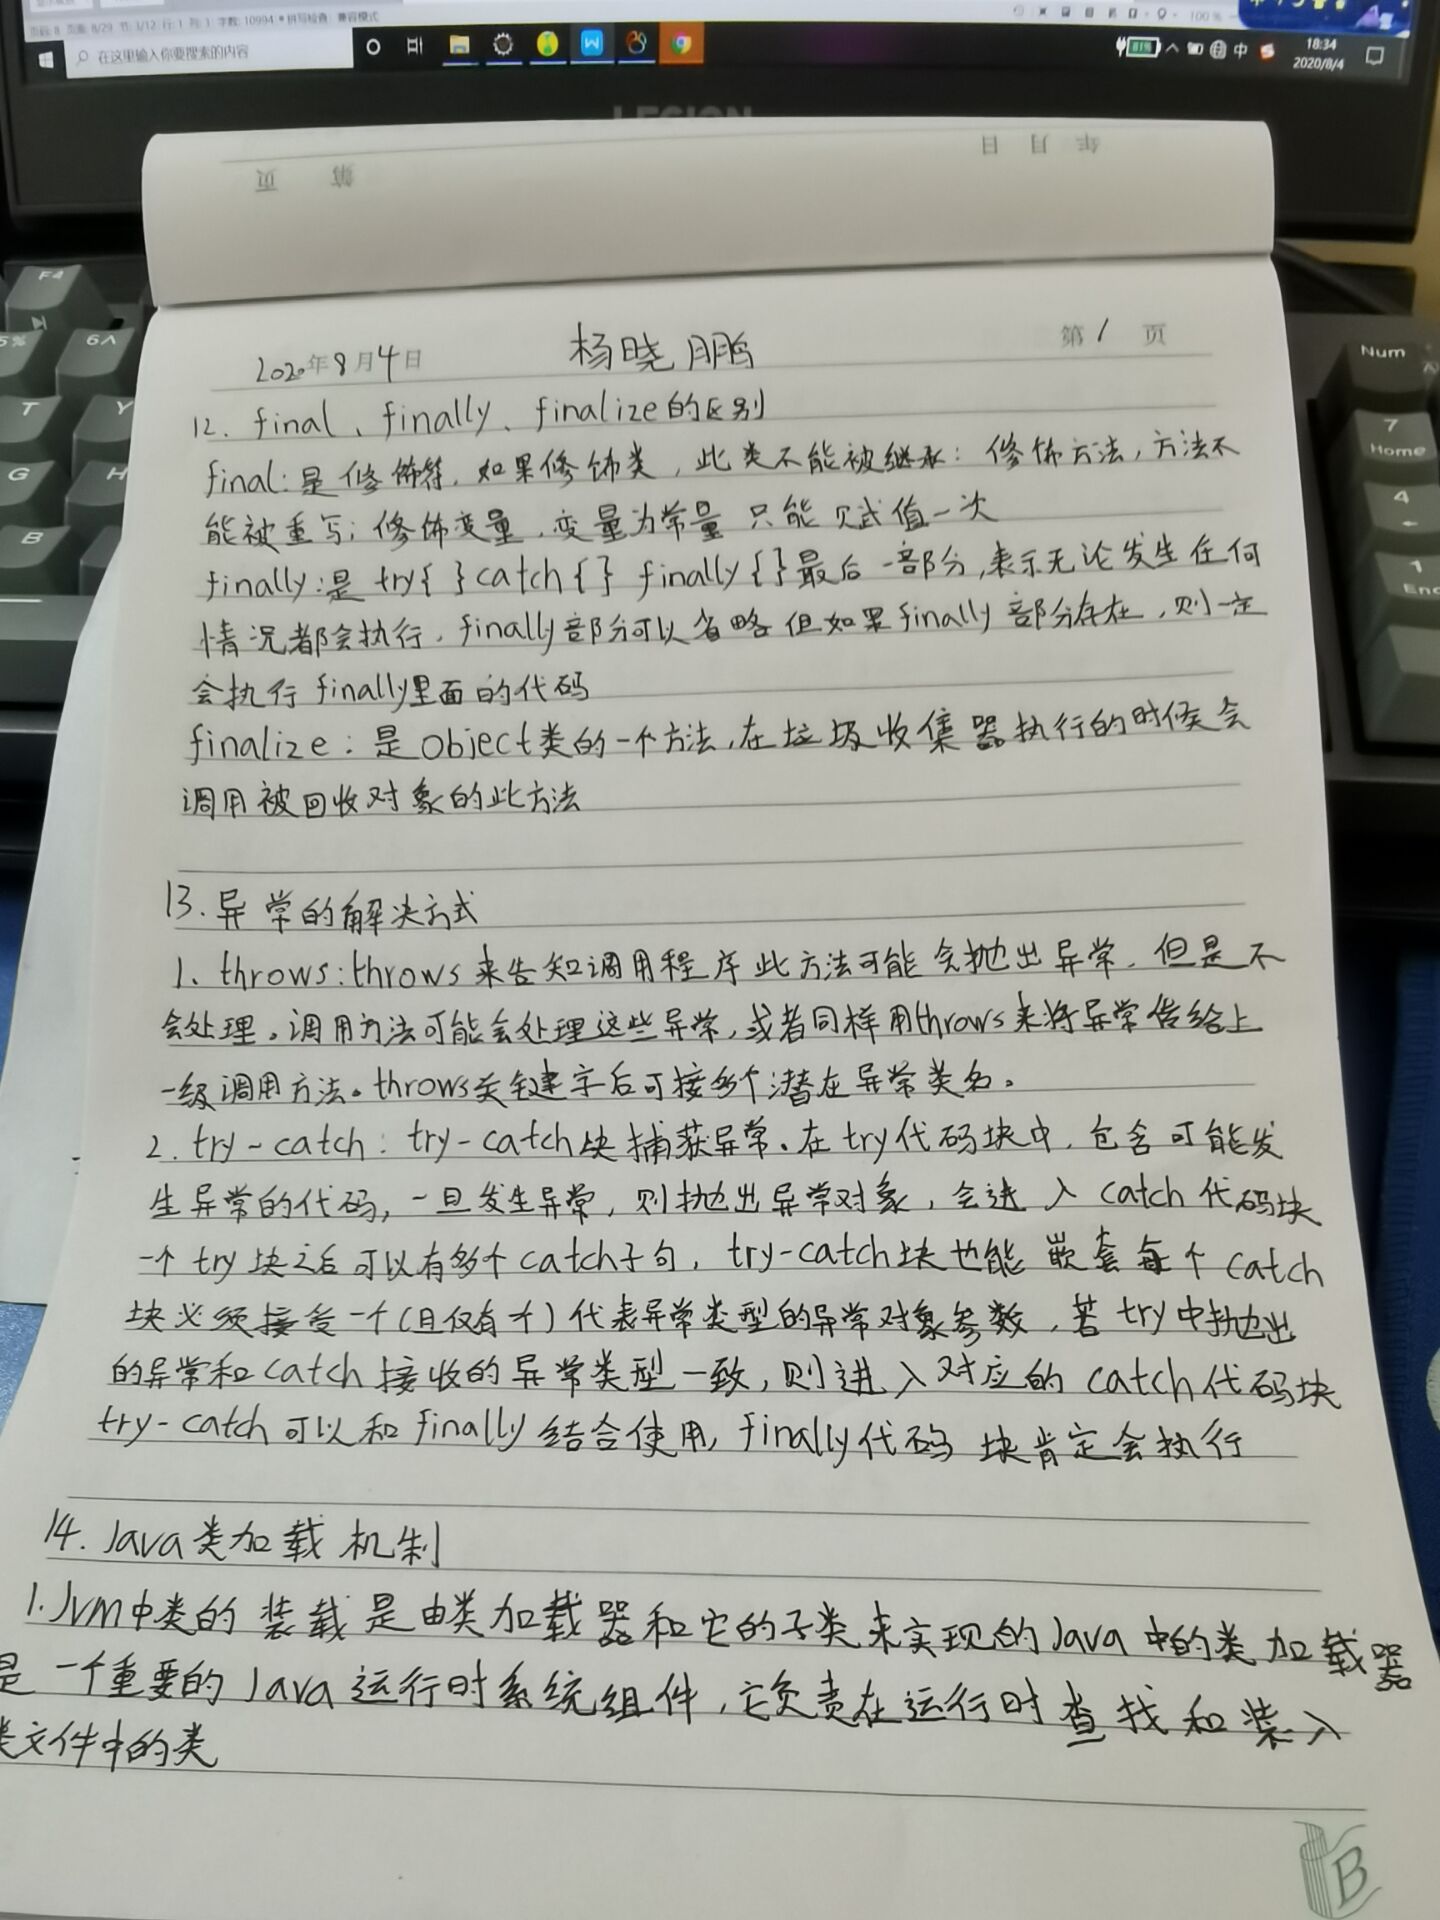 页面: 8/29 节: 1/12 行: 1 列: 1 字数: 10994 拼写检查 兼容模式
100%
在这里输入你要搜索的内容
W
81%
中
18:34
2020/8/4
LEGION
年 月 日
第 页
F4
5%
6^
T
Y
G
H
B
Num
7
Home
4
1
2020年8月4日 杨晓鹏 第1页
12. final、finally、finalize的区别
final:是修饰符,如果修饰类,此类不能被继承;修饰方法,方法不
能被重写;修饰变量,变量为常量 只能赋值一次
finally:是try{ }catch{} finally{}最后一部分,表示无论发生任何
情况都会执行,finally部分可以省略但如果finally部分存在,则一定
会执行finally里面的代码
finalize:是object类的一个方法,在垃圾收集器执行的时候会
调用被回收对象的此方法
13.异常的解决方式
1、throws:throws来告知调用程序此方法可能会抛出异常,但是不
会处理。调用方法可能会处理这些异常,或者同样用throws来将异常传给上
一级调用方法。throws关键字后可接多个潜在异常类名。
2.try-catch:try-catch块捕获异常。在try代码块中,包含可能发
生异常的代码,一旦发生异常,则抛出异常对象,会进入catch代码块
一个try块之后可以有多个catch子句,try-catch块也能嵌套每个catch
块必须接受一个(且仅有个)代表异常类型的异常对象参数,若try中抛出
的异常和catch接收的异常类型一致,则进入对应的catch代码块
try-catch可以和finally结合使用,finally代码块肯定会执行
14.Java类加载机制
1.Jvm中类的装载是由类加载器和它的子类来实现的Java中的类加载器
是一个重要的Java运行时系统组件,它负责在运行时查找和装入
类文件中的类
B